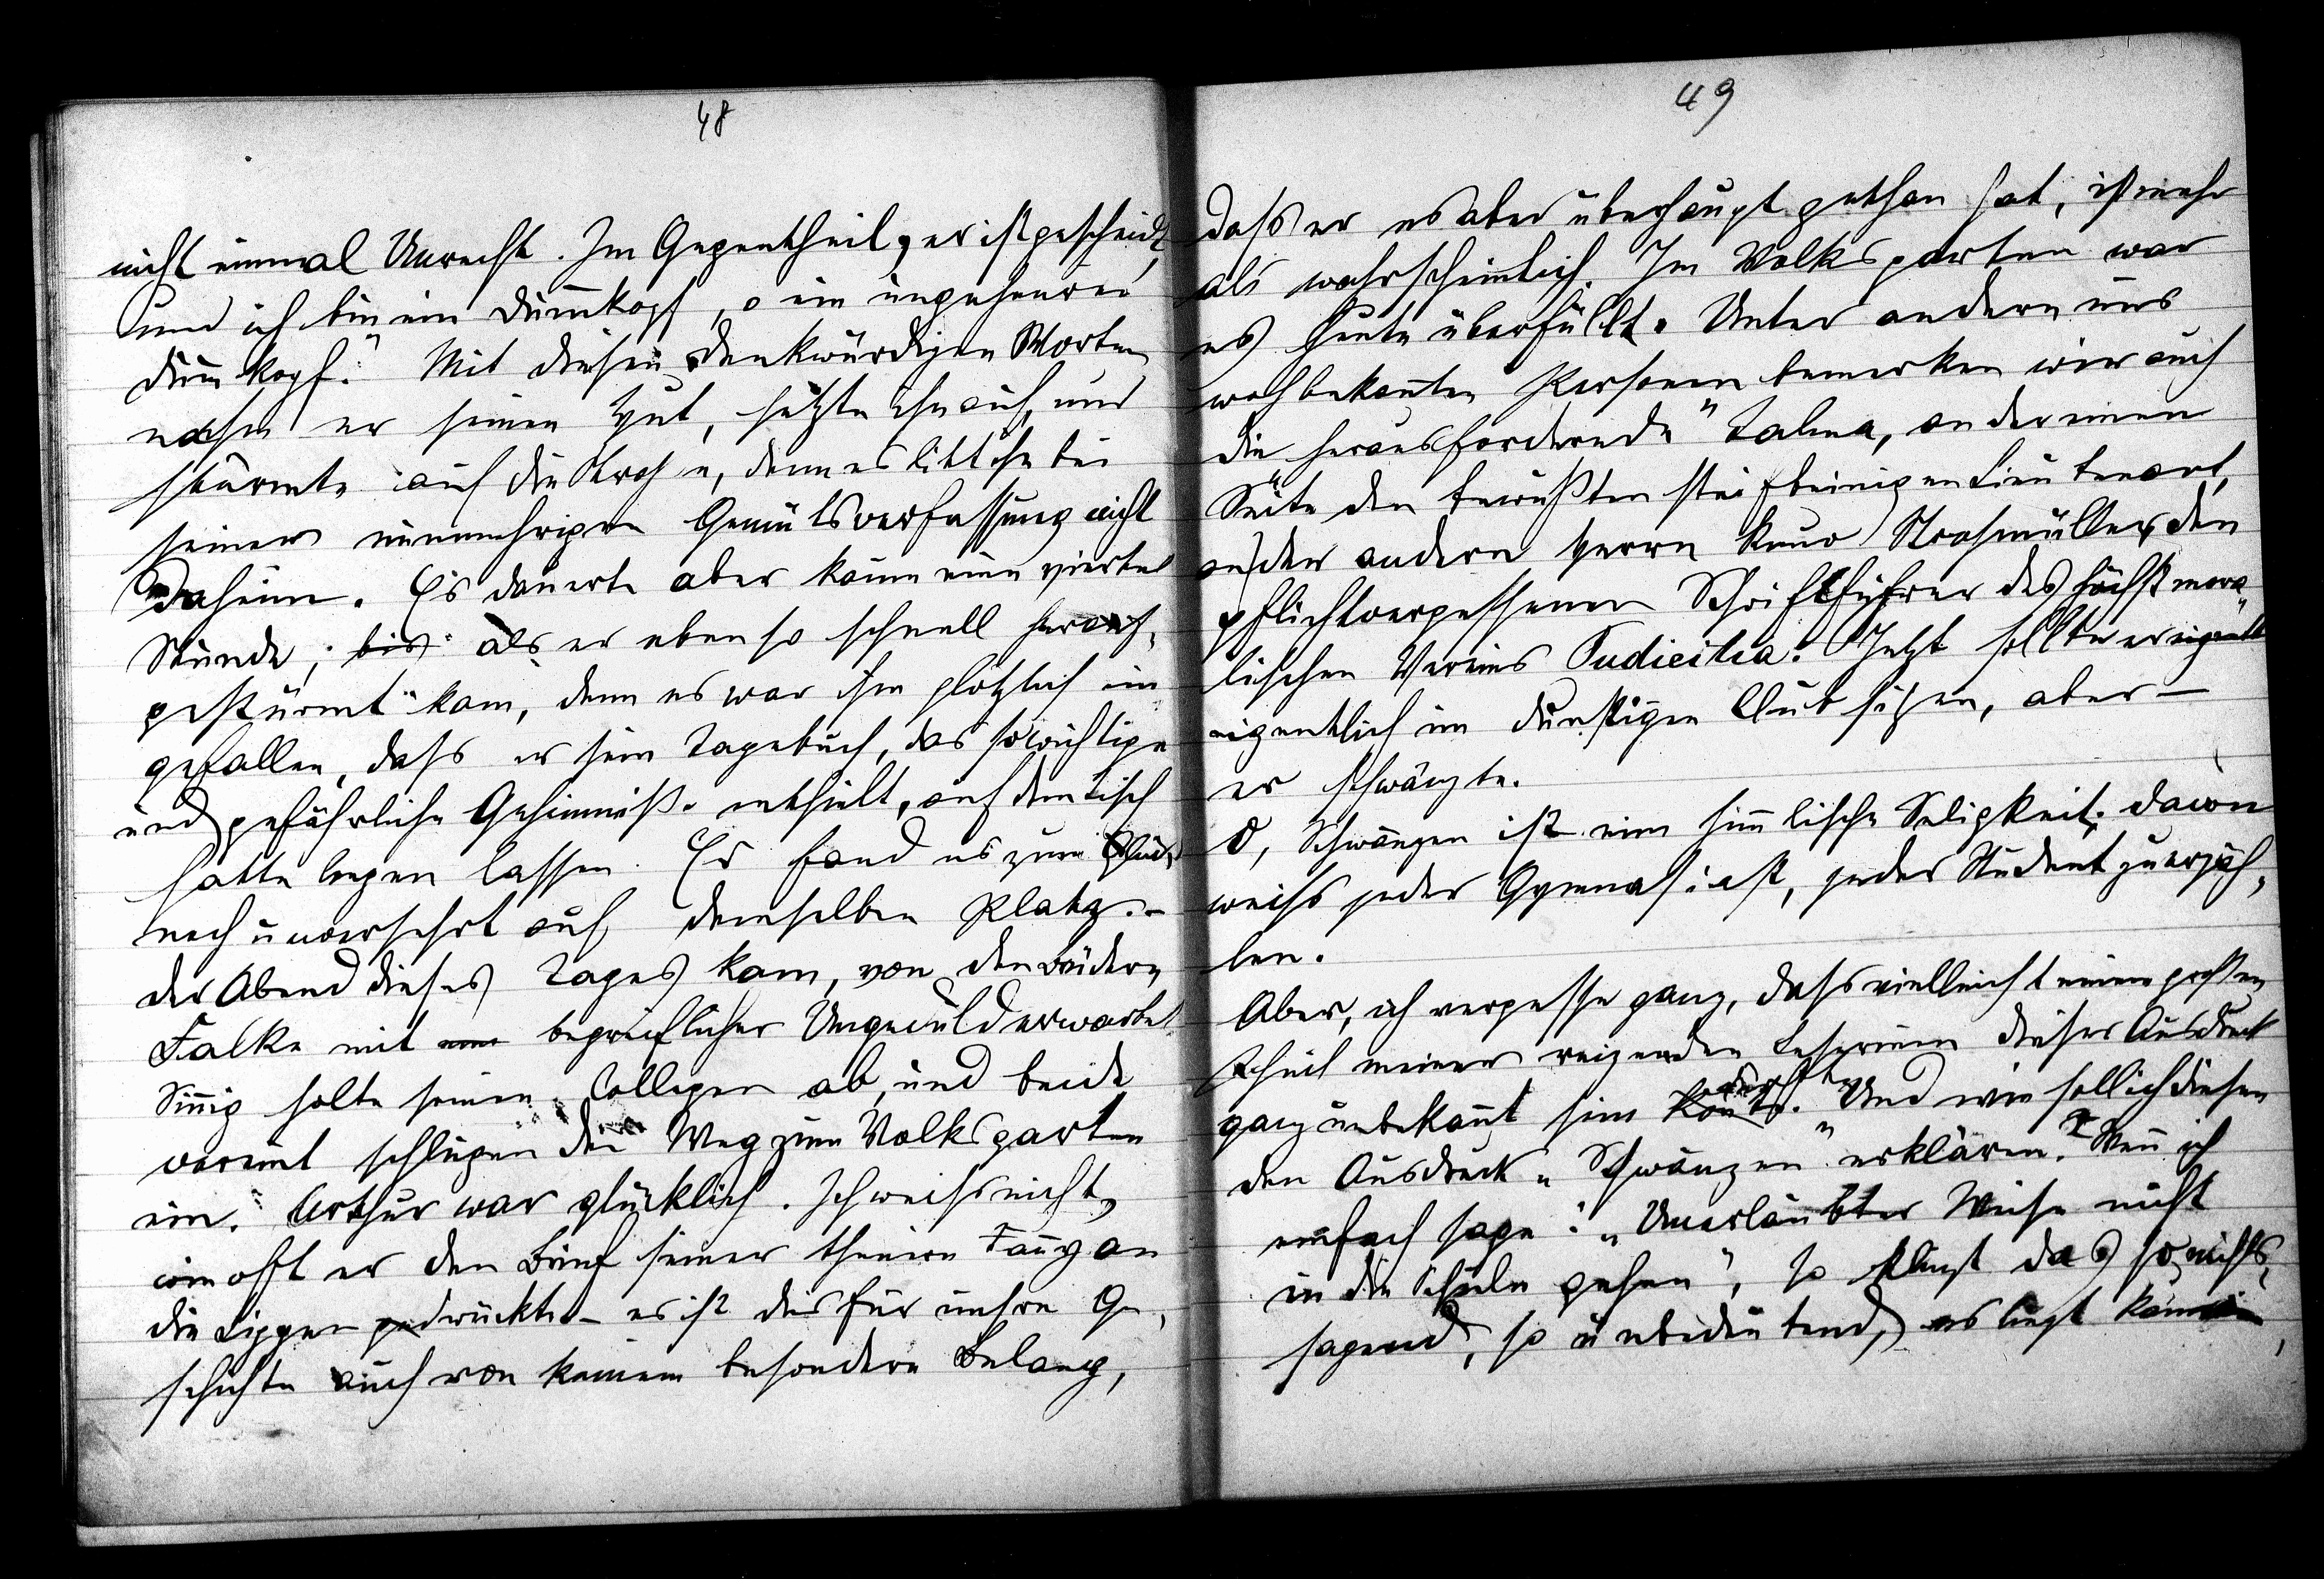 48
nicht einmal Unrecht. Im Gegentheil, er ist gescheidt,
und ich bin ein Dum̅kopf, o ein ungeheurer
Dum̅kopf." Mit diesen denkwürdigen Worten
nahm er seinen Hut, setzte ihn auf, und
stürmte auf die Strasse, denn es litt ihn bei
seiner nunmehrigen Gemütsverfassung nicht
daheim. Es dauerte aber kaum eine viertel
Stunde, bis als er eben so schnell herauf-
gestürmt kam, denn es war ihm plötzlich ein
gefallen, dass er sein Tagebuch, das so wichtige
und gefährliche Geheimniße enthielt, auf dem Tisch
hatte liegen lassen. Er fand es zum Glück
noch unversehrt auf demselben Platz.-
Der Abend dieses Tages kam, von den beiden
Falke mit begreiflicher Ungeduld erwartet
Sin̅ig holte seinen Collegen ab, und beide
vereint schlugen den Weg zum Volksgarten
ein. Arthur war glücklich. Ich weiss nicht,
wie oft er den Brief seiner theuren Fan̅y an
die Lippen gedrückt - es ist dies für unsre Ge-
schichte auch von keinem besondern Belang,
49
dass er es aber überhaupt gethan hat, ist mehr
als wahrscheinlich. Im Volksgarten war
es heute überfüllt. Unter andern uns
wohbekan̅ten Personen bemerken wir auch
die „herausfordernde" Talma, an der einen
Seite den bewußten steifbeinigen Lieutenant,
an der andern Herrn Kuno Strohmüller, den
pflichtvergessenen Schriftführer des höchst mora-
lischen Vereins Pudicitia. Jetzt sollte er eigentl
eigentlich im dunstigen Club sitzen, aber —
er schwänzte.
O, Schwänzen ist eine him̅lische Seligkeit; davon
weiss jeder Gymnasiast, jeder Student zu erzäh-
len.
Aber, ich vergesse ganz, dass vielleicht einem grossen
Theil meiner reizenden Leserinen dieser Ausdruck
ganz unbekan̅t sein kön̅te dürfte. Und wie soll ich diesen
den Ausdruck „Schwänzen" erklären? Wen̅ ich
einfach sage: „Unerlaubter Weise nicht
in die Schule gehen", so klingt das so nichts-
sagend, so unbedeutend, es liegt kein